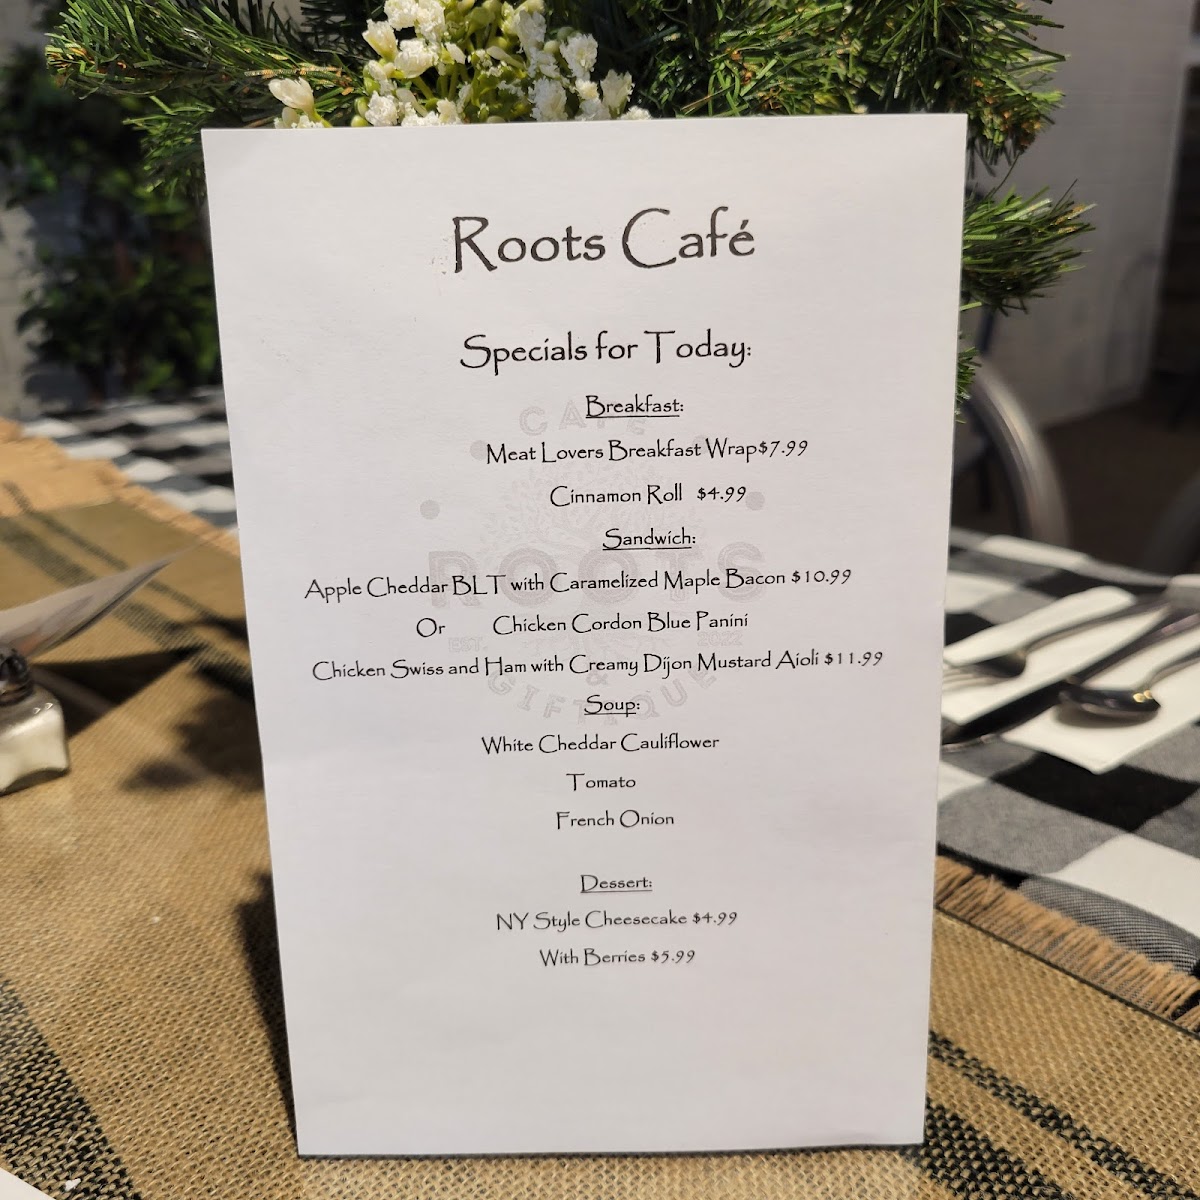 Roots Café
Specials for Today:
Breakfast:
Meat Lovers Breakfast Wrap$7.99
Cinnamon Roll $4.99
Sandwich:
Apple Cheddar BLT with Caramelized Maple Bacon $10.99
Or Chicken Cordon Blue Panini
Chicken Swiss and Ham with Creamy Dijon Mustard Aioli $11.99
Soup:
White Cheddar Cauliflower
Tomato
French Onion
Dessert:
NY Style Cheesecake $4.99
With Berries $5.99
CAFE
ROOTS
EST. 2022
&
GIFTIQUE